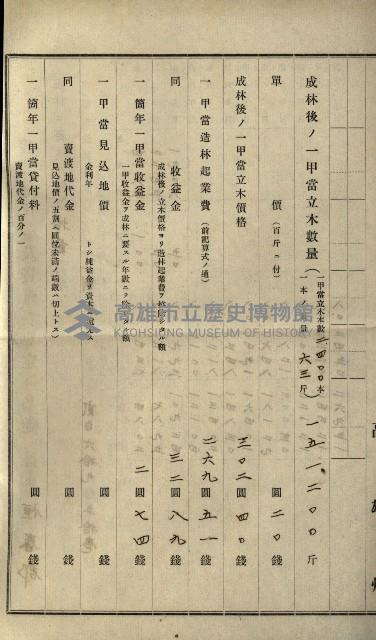 成林後ノ一甲當立木數量(一甲當立木本數二四〇〇本 一本ノ量 六三斤) 一五一二〇〇斤
單價(百斤ニ付) 圓二〇錢
成林後ノ一甲當立木價格 三〇二圓四〇錢
一甲當造林起業費(前記算式ノ通) 二六九圓五一錢
同 收益金 三二圓八九錢
成林後ノ立木價格ヨリ造林起業費ヲ控除シタル額
一箇年一甲當收益金 二圓七四錢
一甲收益金ヲ成林ニ要スル年數ニテ除シタル額
一甲當見込地價 圓 錢
金利年 トシ純益金ヲ資本ニ還元ス
同 賣渡地代金 圓 錢
見込地價ノ五割(圓位未滿ノ端數ハ切上トス)
一箇年一甲當貸付料 圓 錢
賣渡地代金ノ百分ノ一
高雄州
高雄市立歷史博物館
KAOHSIUNG MUSEUM OF HISTORY